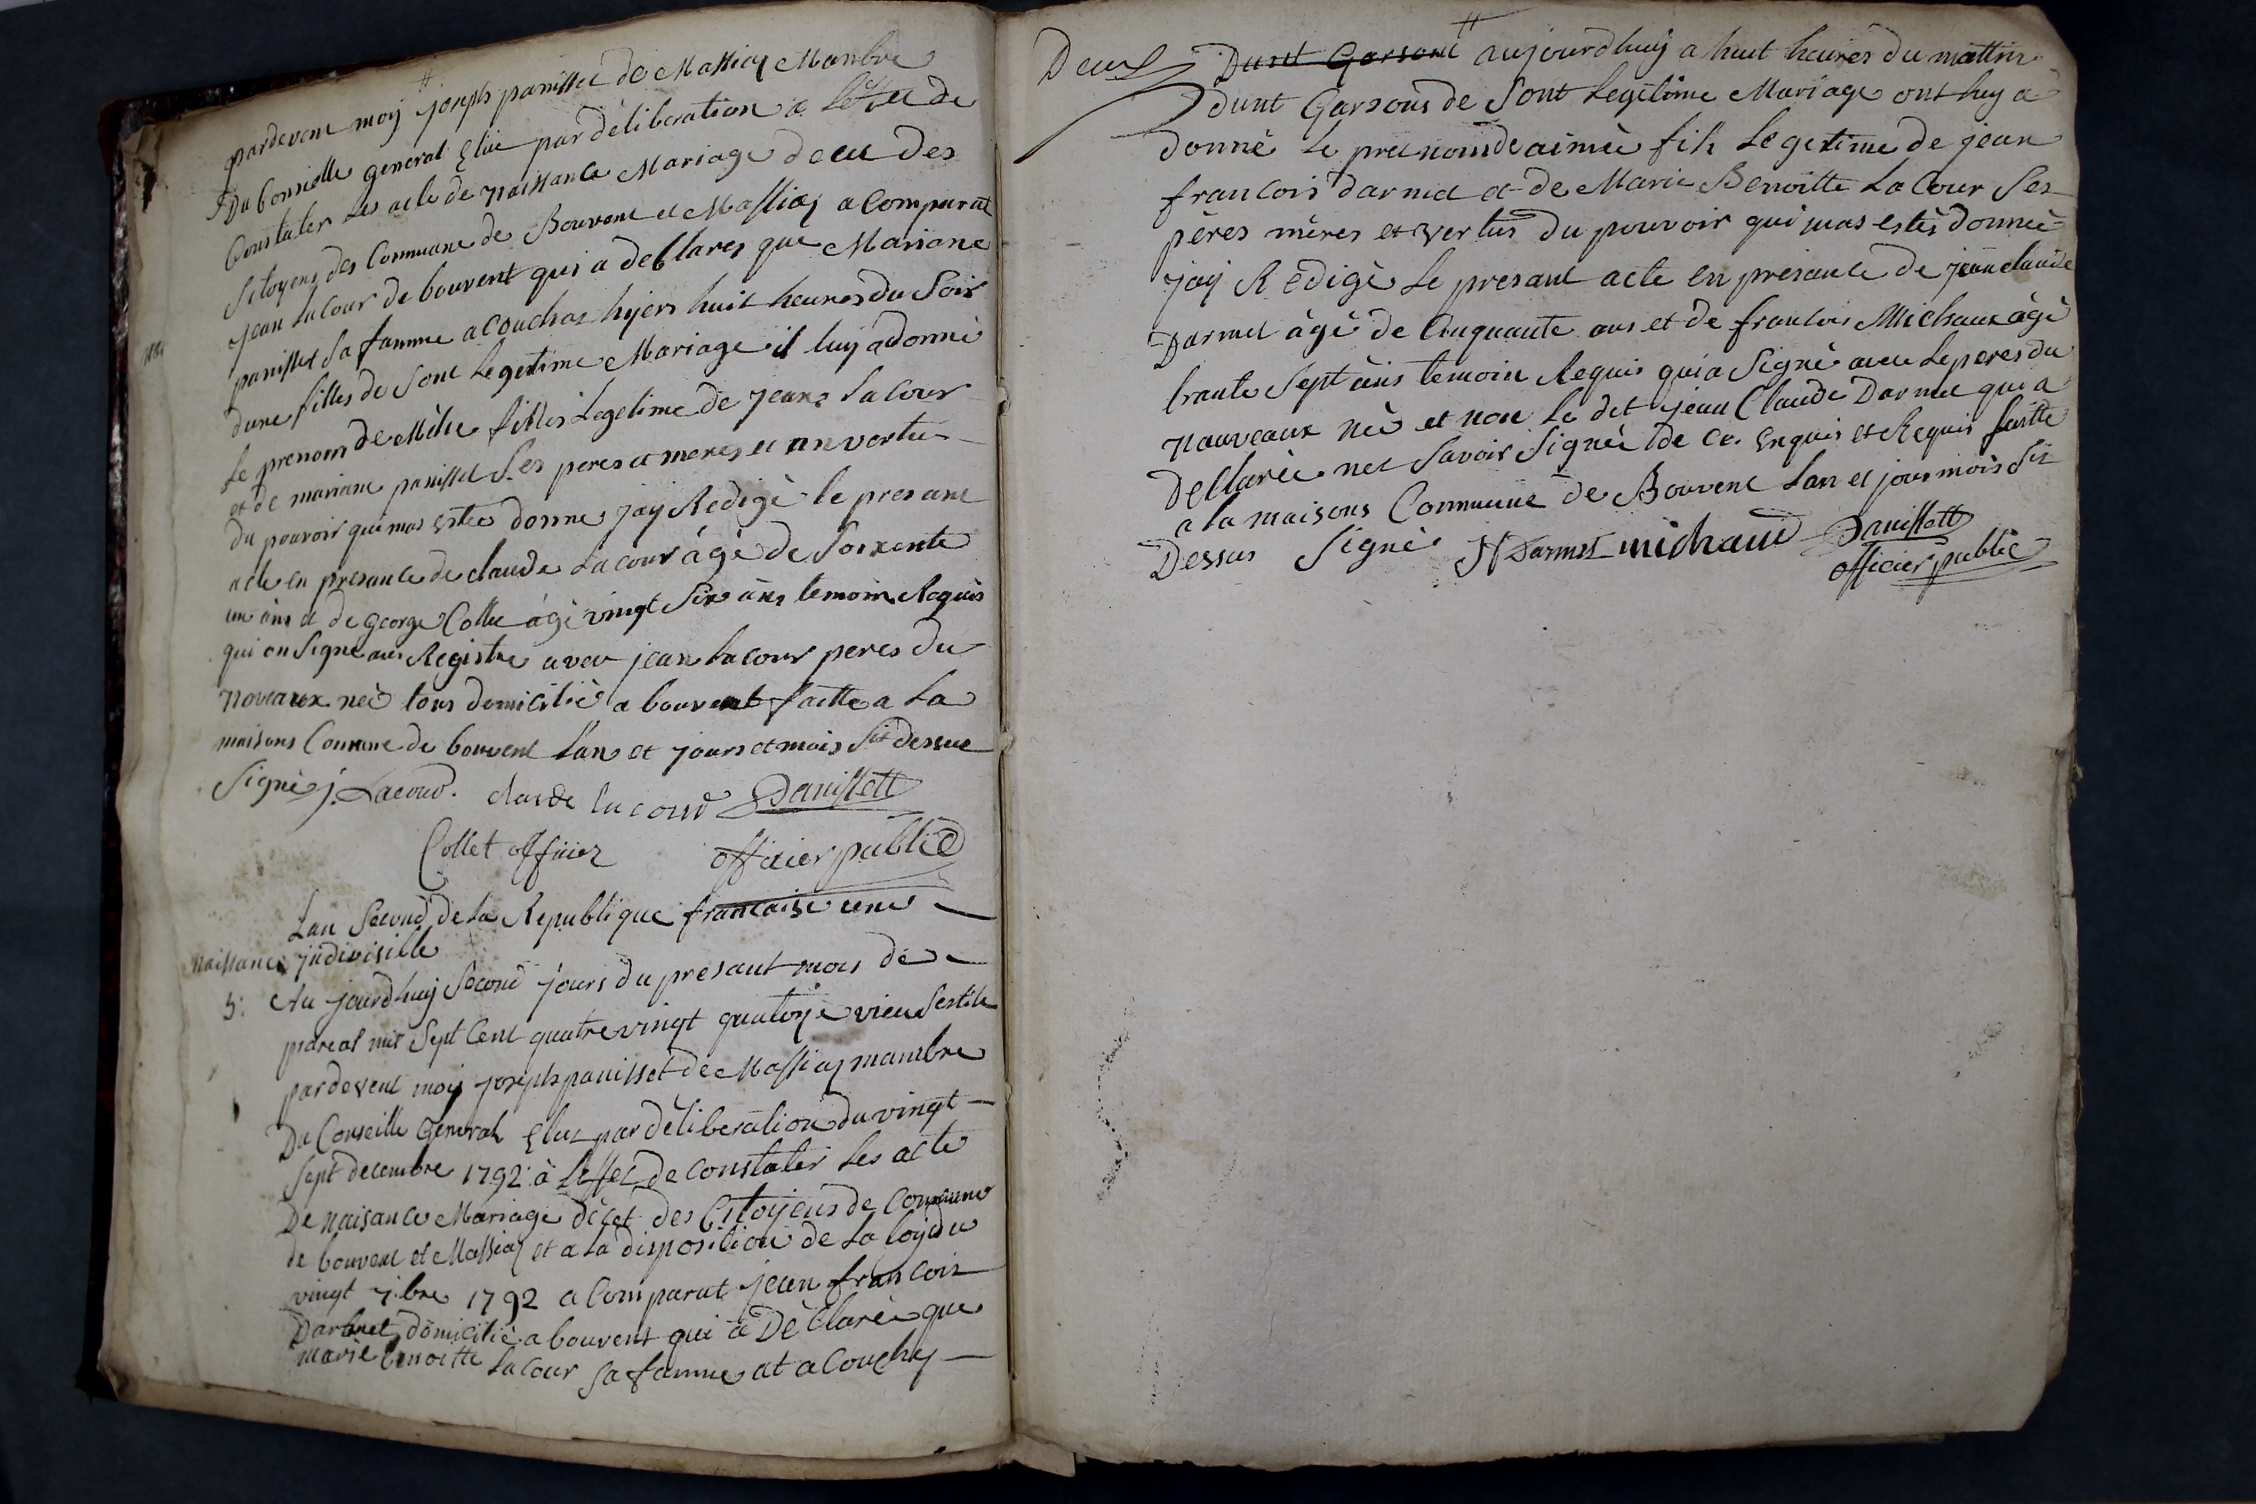 pardevent moij joseph panisset de Massiaz Manbre
Du Conseille general Elüe par dèliberation a Leffect de
Constater Les acte de naissance Mariage deces Des
Sitoyens des Commune de Bouvent et Massiaz a Comparut
jean Lacour de bouvent qui a declares que Mariane
panisset Sa famme acouchas hijers huit heures du Soir
dune filles de Sont Legertime Mariage il luij a donné
Le prenom de filles Legetime de jean Lacour
et de mariane panisset Ses peres et meres et en vertu
du pouvoir qui mas Estee donne jaij Redigé le presant
acte en presance de claude Lacour âgé de Soixente
un âns et de george Collet âgé vingt Six âns temoin Requis
qui on Signe aux Registre avec jean Lacour peres du
noveaux neè tous domicilié a bouvent faitte a La
maisons Commune de bouvent L'an et jours et mois Sit dessue
Signé j. Lacour. claude la cour Panissett
Collet officiez officier public
Lan Second de La Republique francaise une
naissance jndivisible
5: Au jourdhuij Second jours du presant mois de
preréal mil Sept Cent quatrevingt quatorze vieu Sestile
pardevent moij joseph panisset de Massiaz manbre
Du Conseille General Elus par dèliberation du vingt
Sept decembre 1792 à Leffet de Constater Les acte
De naisance Mariage décet des Citoyens de Commune
de bouvent et Massiaz et a la disposition de La loij du
vingt 7.bre 1792 a Comparut jean francois
Darmet domicilié a bouvent qui a Dèclarée que
marie benoitte Lacour Sa famme at a Couchez
Dunt Garsont aujourdhuij a huit heures du mattin
dunt Garsons de Sont Legetime Mariage ont luy a
donné Le prenom de aimée fils Legetime de jean
francois darmet et de Marie Benoitte La Cour Ses
pères mères et vertus du pouvoir qui mas estés donneé
jaij Redigé Le presant acte en presance de jean claude
Darmet âgé de Cinquante ans et de francois Michaux âgé
trante Sept âns temoin Requis quia Signé avec Le peres du
nauveaux neè et non Le dit jean Claude Darmet qui a
Declarée net Savoir Signée de ce Enquis et Requis faitte
a la maisons Commune de Bouvent Lan et jour mois Sit
Dessus Signé Jf Darmet michaud Panissett
officier public